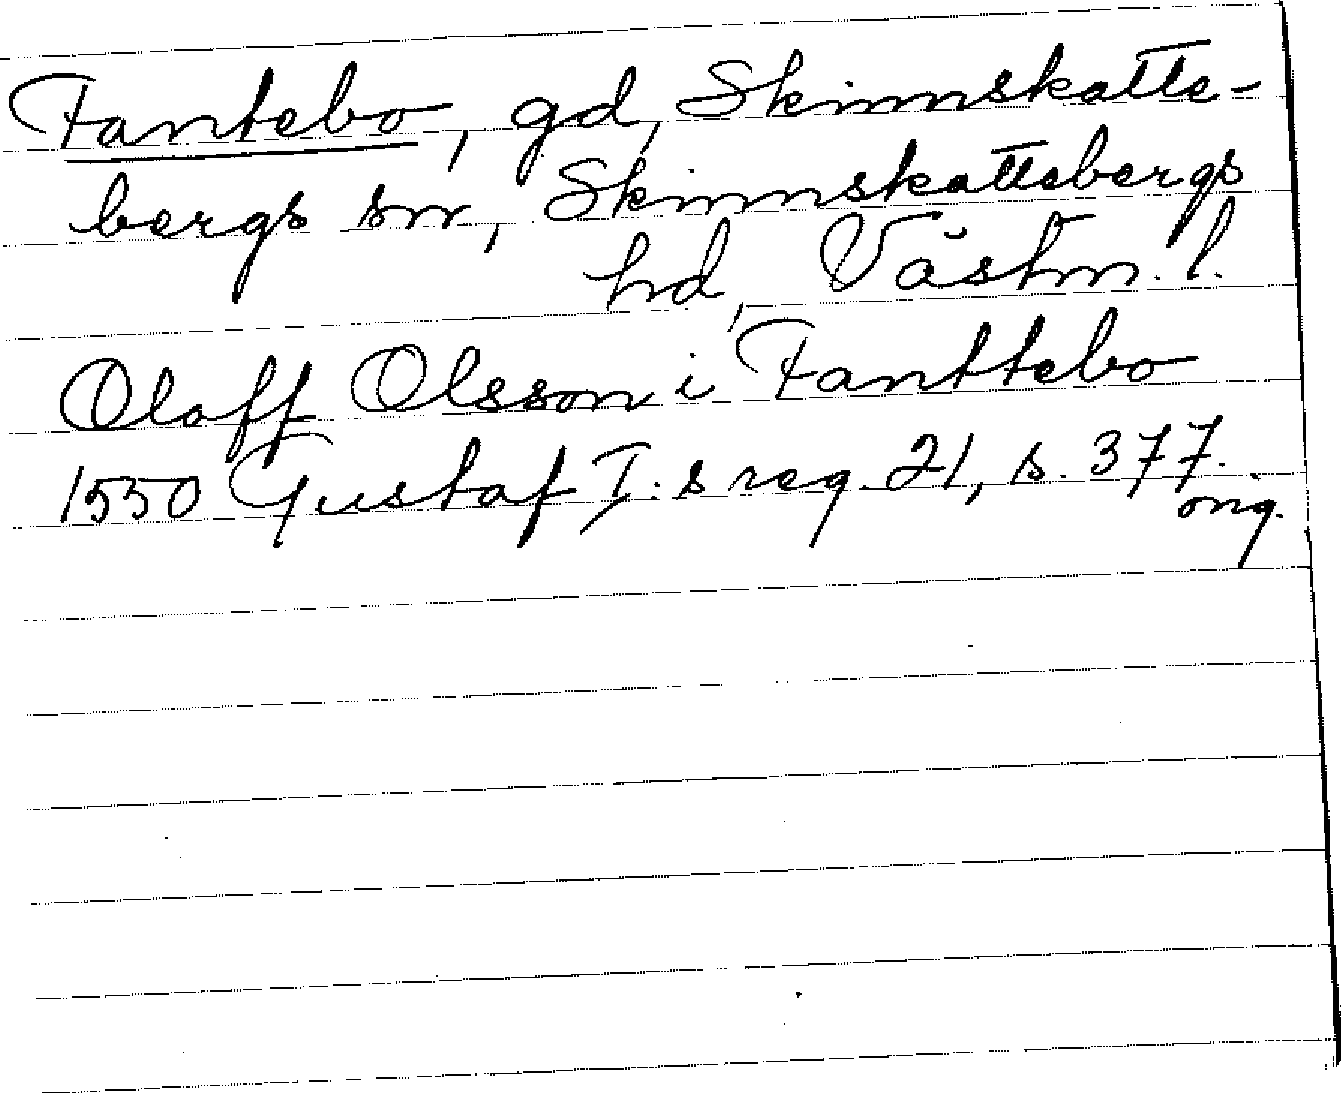 Fantebo, gd, Skinnskatte-
bergs sn, Skinnskattebergs
hd, Västm. l.
Olaff Olsson i Fanttebo
1550 Gustaf I:s reg. 21, s. 377.
orig.